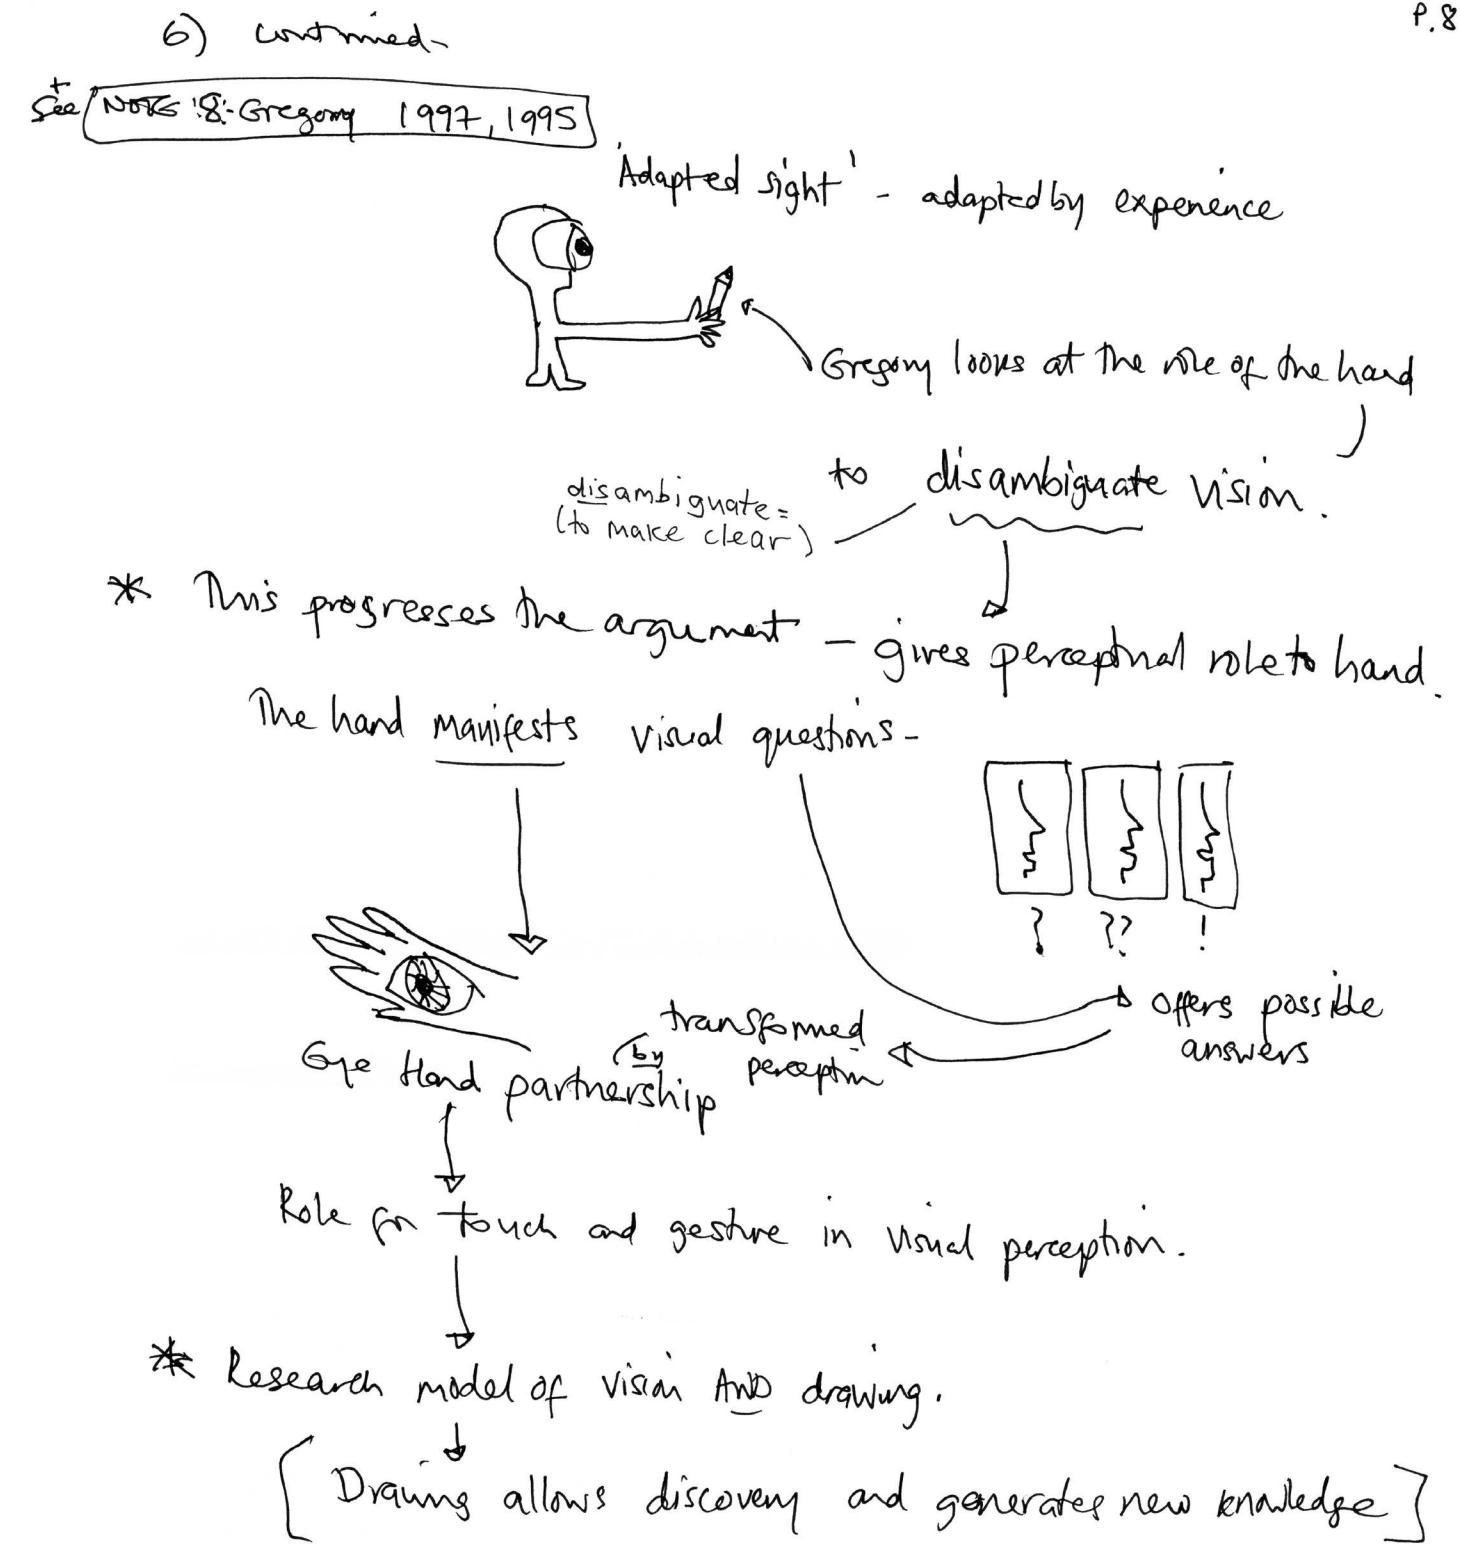 P.8
6) continued-
+
See NOTE 8:- Gregory 1997, 1995
'Adapted sight' - adapted by experience
Gregory looks at the role of the hand
to disambiguate vision.
disambiguate =
(to make clear)
* This progresses the argument - gives perceptual role to hand.
The hand manifests visual questions -
? ?? !
offers possible
answers
transformed
perception
by
Eye Hand partnership
Role for touch and gesture in visual perception.
* Research model of vision AND drawing.
[Drawing allows discovery and generates new knowledge]